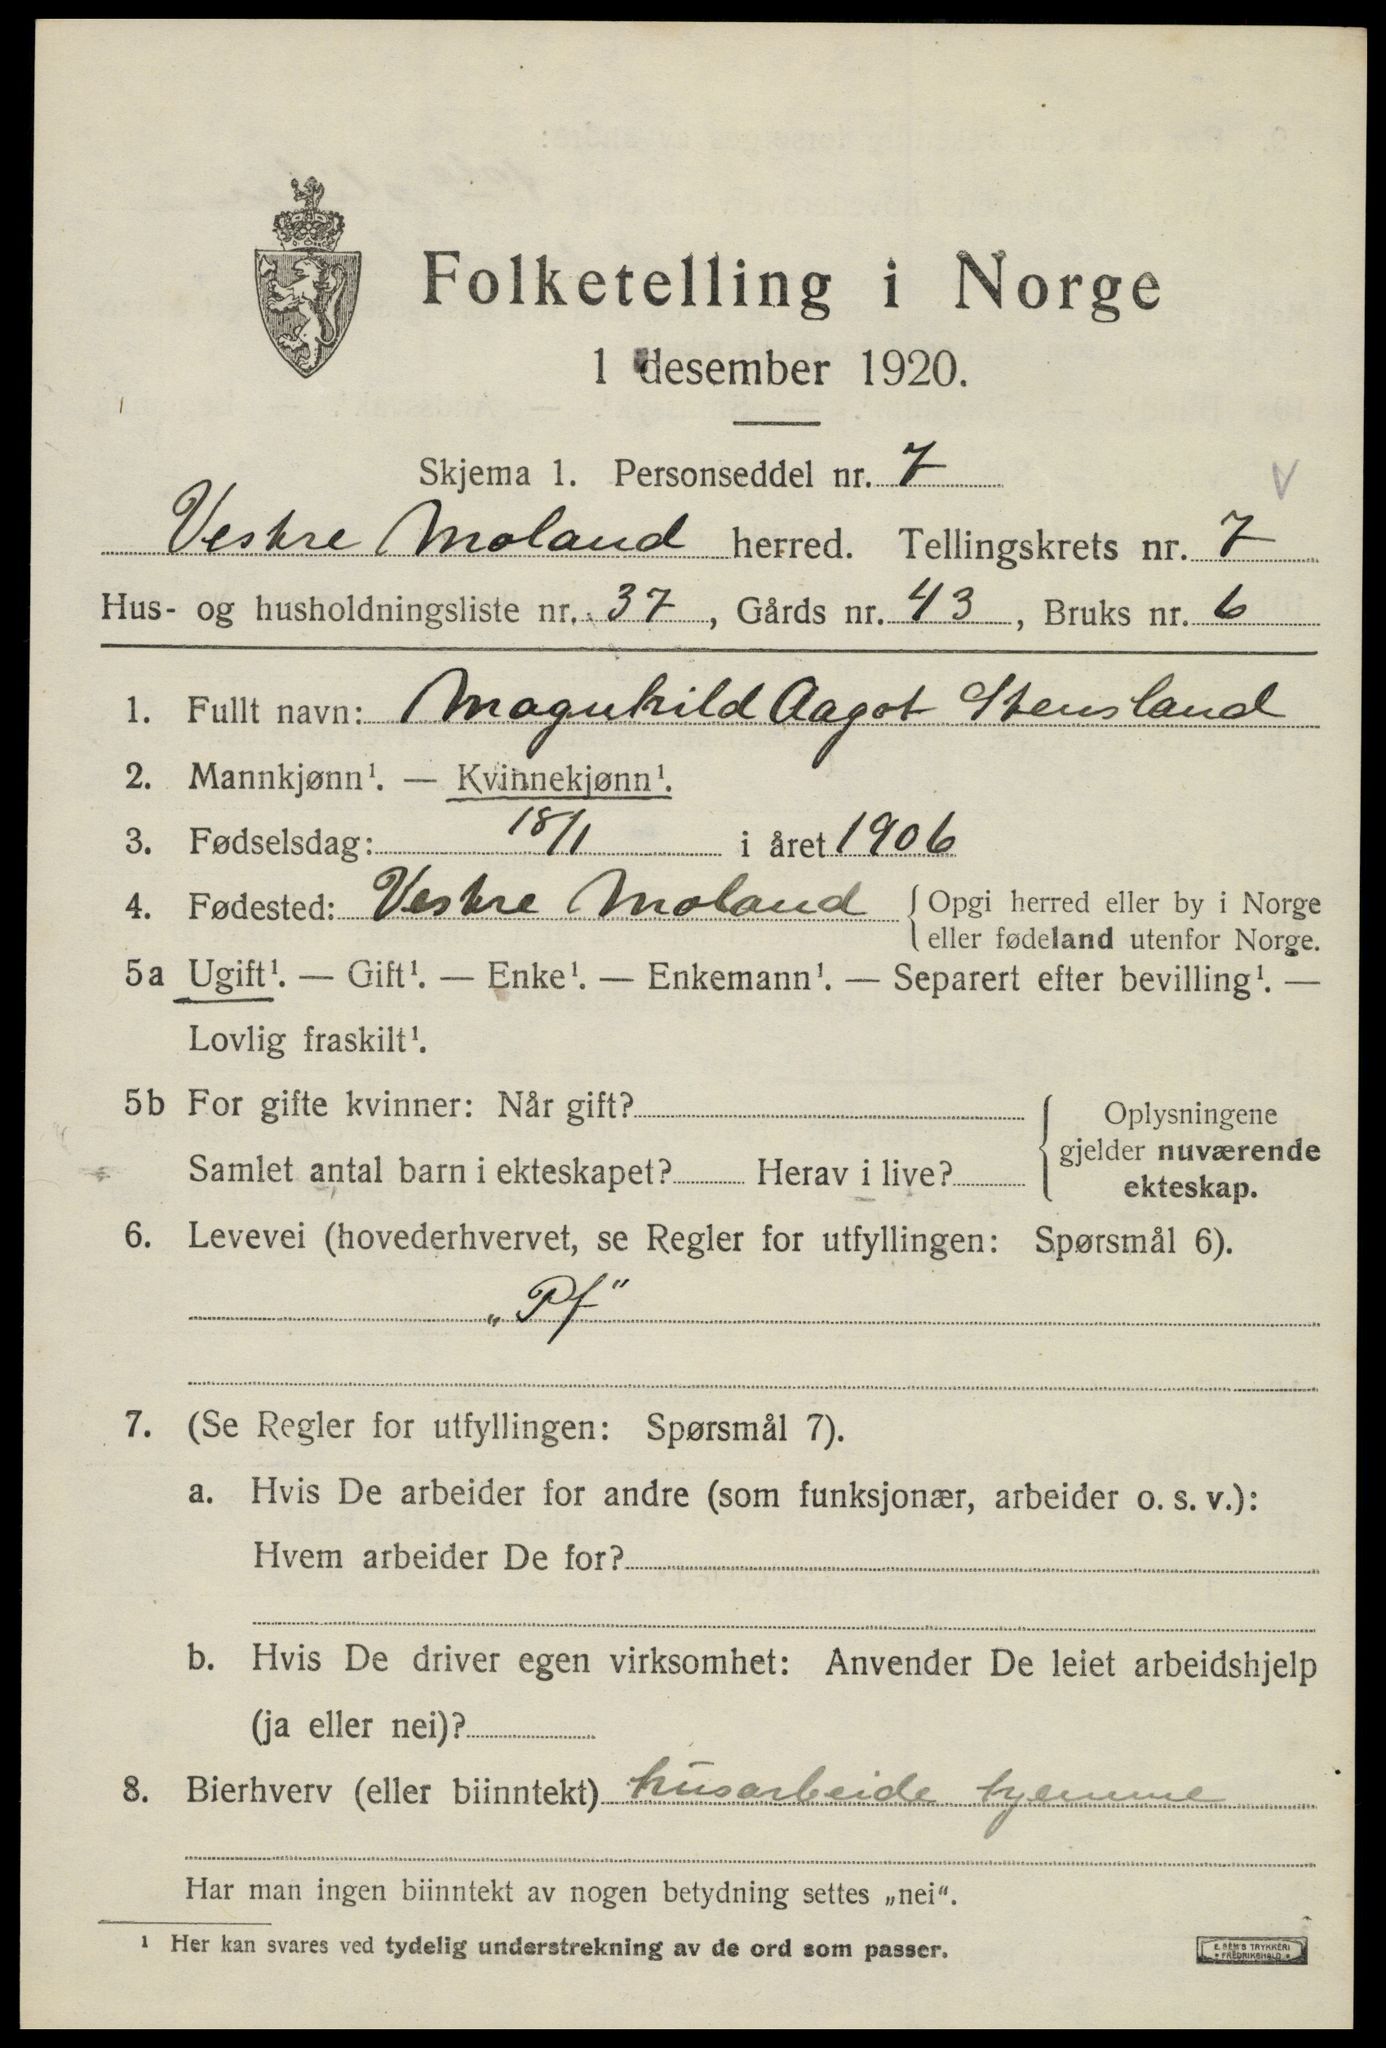 Folketelling i Norge
1 desember 1920.
Skjema 1. Personseddel nr. 7
Vestre Moland herred. Tellingskrets nr. 7
Hus- og husholdningsliste nr. 37, Gårds nr. 43, Bruks nr. 6
1. Fullt navn: Magnhild Aagot Stensland
2. Mannkjønn¹. — Kvinnekjønn¹.
3. Fødselsdag: 18/1 i året 1906
4. Fødested: Vestre Moland { Opgi herred eller by i Norge
eller fødeland utenfor Norge.
5a Ugift¹. — Gift¹. — Enke¹. — Enkemann¹. — Separert efter bevilling¹. —
Lovlig fraskilt¹.
5b For gifte kvinner: Når gift?
Samlet antal barn i ekteskapet? Herav i live?
Oplysningene
gjelder nuværende
ekteskap.
6. Levevei (hovederhvervet, se Regler for utfyllingen: Spørsmål 6).
„Pf“
7. (Se Regler for utfyllingen: Spørsmål 7).
a. Hvis De arbeider for andre (som funksjonær, arbeider o. s. v.):
Hvem arbeider De for?
b. Hvis De driver egen virksomhet: Anvender De leiet arbeidshjelp
(ja eller nei)?
8. Bierhverv (eller biinntekt) husarbeide hjemme
Har man ingen biinntekt av nogen betydning settes „nei“.
¹ Her kan svares ved tydelig understrekning av de ord som passer.
E. SEM'S TRYKKERI
FREDRIKSHALD